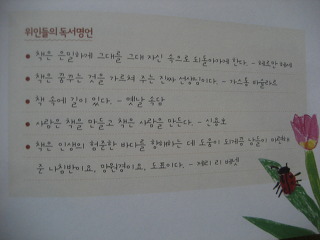 위인들의 독서명언
• 책은 은밀하게 그대를 그대 자신 속으로 되돌아가게 한다. - 헤르만 헤세
• 책은 꿈꾸는 것을 가르쳐 주는 진짜 선생님이다. - 가스통 바슐라르
• 책 속에 길이 있다. - 옛날 속담
• 사람은 책을 만들고 책은 사람을 만든다. - 신용호
• 책은 인생의 험준한 바다를 항해하는 데 도움이 되게끔 남들이 마련해
준 나침반이요, 망원경이요, 도표이다. - 제리 리 베넷